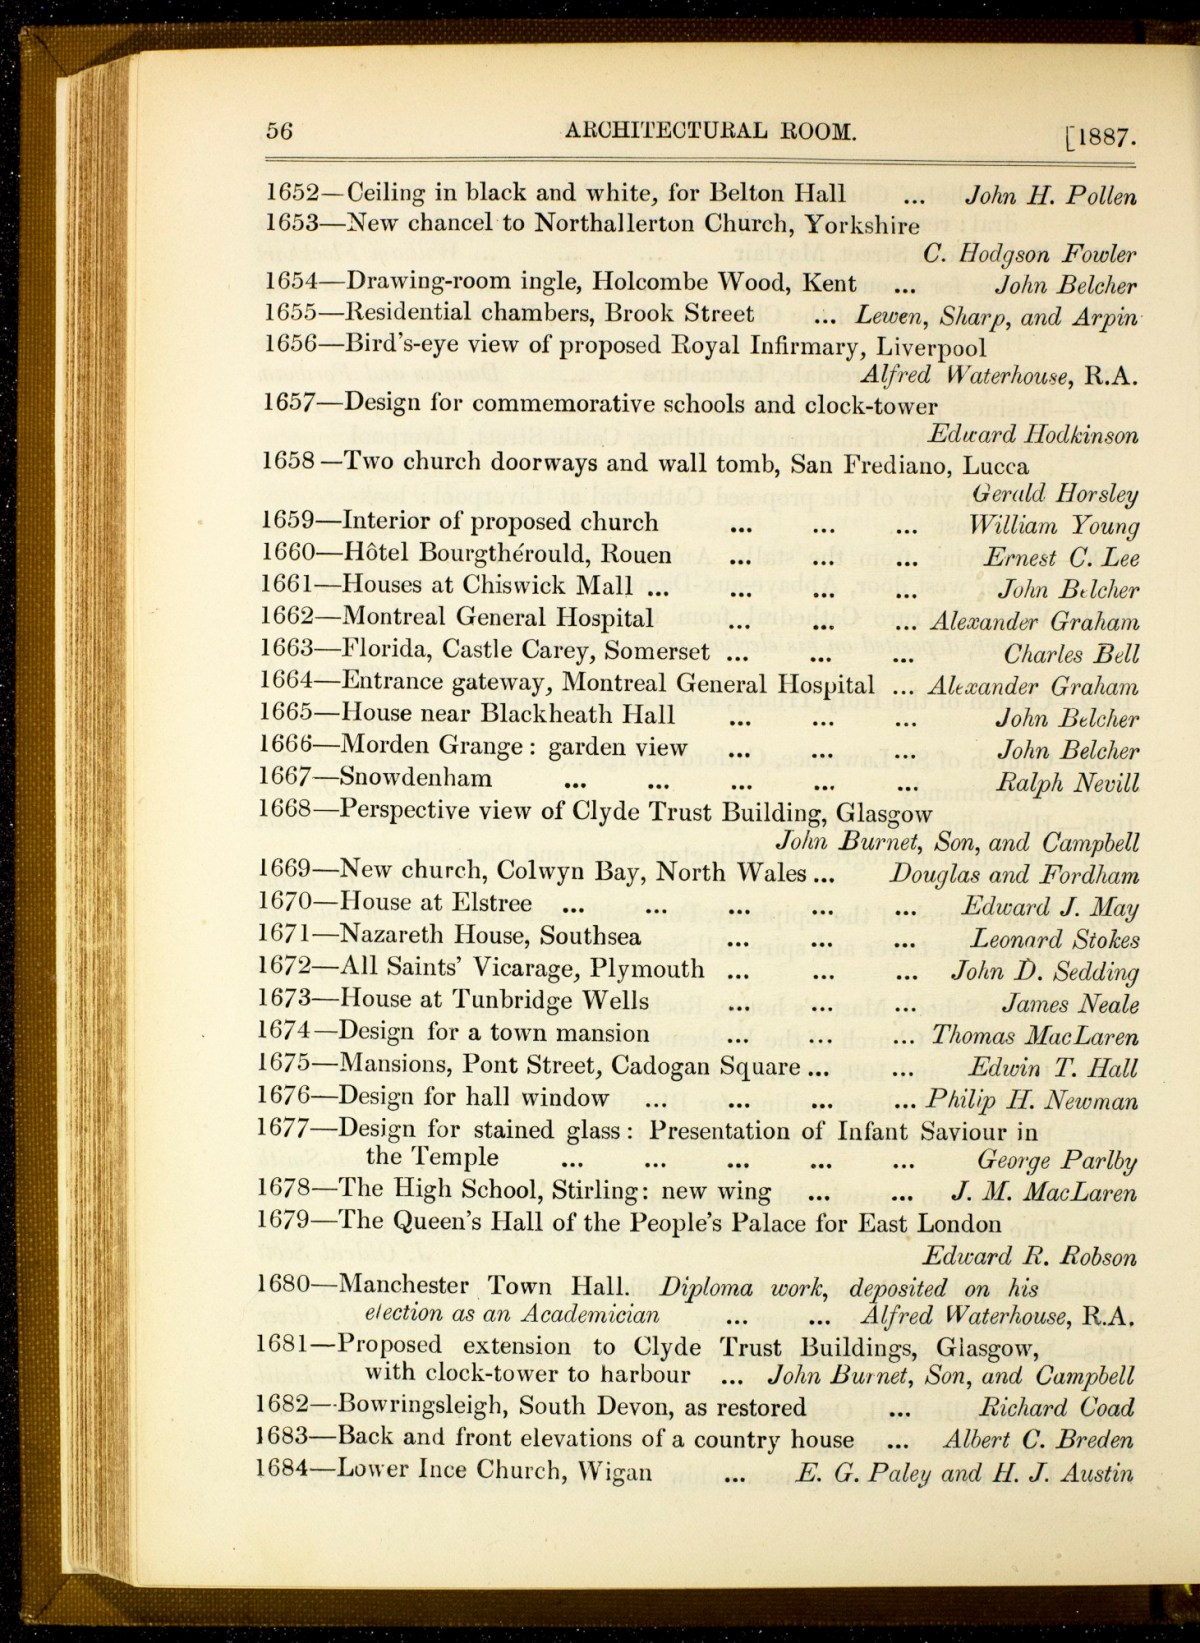 56 ARCHITECTURAL ROOM. [1887.
1652—Ceiling in black and white, for Belton Hall ... John H. Pollen
1653—New chancel to Northallerton Church, Yorkshire
C. Hodgson Fowler
1654—Drawing-room ingle, Holcombe Wood, Kent ... John Belcher
1655—Residential chambers, Brook Street ... Lewen, Sharp, and Arpin
1656—Bird's-eye view of proposed Royal Infirmary, Liverpool
Alfred Waterhouse, R.A.
1657—Design for commemorative schools and clock-tower
Edward Hodkinson
1658—Two church doorways and wall tomb, San Frediano, Lucca
Gerald Horsley
1659—Interior of proposed church ... ... ... William Young
1660—Hôtel Bourgthérould, Rouen ... ... ... Ernest C. Lee
1661—Houses at Chiswick Mall ... ... ... ... John Belcher
1662—Montreal General Hospital ... ... ... Alexander Graham
1663—Florida, Castle Carey, Somerset ... ... ... Charles Bell
1664—Entrance gateway, Montreal General Hospital ... Alexander Graham
1665—House near Blackheath Hall ... ... ... John Belcher
1666—Morden Grange : garden view ... ... ... John Belcher
1667—Snowdenham ... ... ... ... ... Ralph Nevill
1668—Perspective view of Clyde Trust Building, Glasgow
John Burnet, Son, and Campbell
1669—New church, Colwyn Bay, North Wales ... Douglas and Fordham
1670—House at Elstree ... ... ... ... ... Edward J. May
1671—Nazareth House, Southsea ... ... ... Leonard Stokes
1672—All Saints' Vicarage, Plymouth ... ... ... John D. Sedding
1673—House at Tunbridge Wells ... ... ... James Neale
1674—Design for a town mansion ... ... ... Thomas MacLaren
1675—Mansions, Pont Street, Cadogan Square ... ... Edwin T. Hall
1676—Design for hall window ... ... ... ... Philip H. Newman
1677—Design for stained glass : Presentation of Infant Saviour in
the Temple ... ... ... ... ... George Parlby
1678—The High School, Stirling: new wing ... ... J. M. MacLaren
1679—The Queen's Hall of the People's Palace for East London
Edward R. Robson
1680—Manchester Town Hall. Diploma work, deposited on his
election as an Academician ... ... Alfred Waterhouse, R.A.
1681—Proposed extension to Clyde Trust Buildings, Glasgow,
with clock-tower to harbour ... John Burnet, Son, and Campbell
1682—Bowringsleigh, South Devon, as restored ... Richard Coad
1683—Back and front elevations of a country house ... Albert C. Breden
1684—Lower Ince Church, Wigan ... E. G. Paley and H. J. Austin